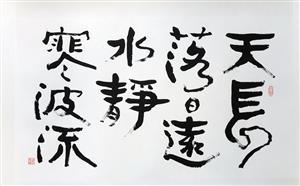 天長
落日遠
水靜
寒波流